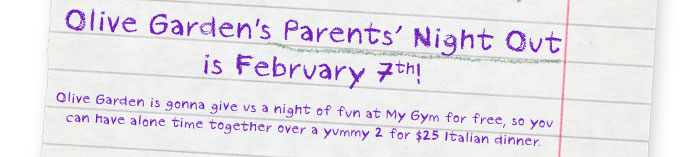 Olive Garden's Parents' Night Out
is February 7th!
Olive Garden is gonna give us a night of fun at My Gym for free, so you
can have alone time together over a yummy 2 for $25 Italian dinner.